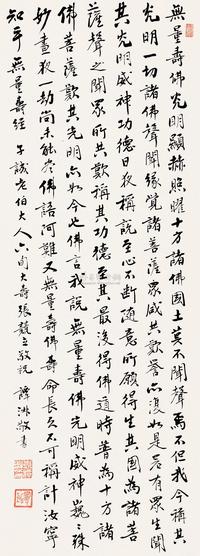 無量壽佛光明顯赫照曜十方諸佛國土莫不聞聲焉不但我今稱其
光明一切諸佛聲聞緣覺諸菩薩眾咸共歎譽亦復如是若有眾生聞
其光明威神功德日夜稱說至心不斷隨意所願得生其國為諸菩
薩聲聞之眾所共歎稱其功德至其最後得佛道時普為十方諸
佛菩薩歎其光明亦如今也佛言我說無量壽佛光明威神巍巍殊
妙晝夜一劫尚未能盡佛語阿難又無量壽佛壽命長久不可稱計汝寧
知乎 無量壽經 子誠老伯大人六旬大壽張敬祝 敬書